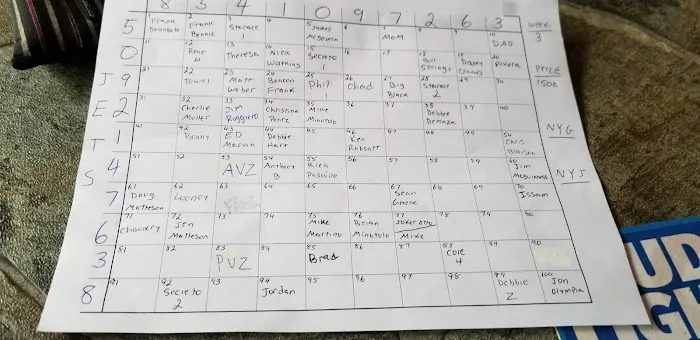 8 5 4 1 0 9 7 2 6 3
5 Frank 2 Frank 3 Storace 4 5 James 6 7 8 9 10
Bennie 1 McGovern MOM DAD
0 11 12 Rene 13 14 Nick 15 Secreto 16 17 18 Bill 19 Danny 20
H Theresa Working Springs
J 9 21 22 23 Matt 24 Beaton 25 Phil 26 27 Big 28 Storace 29 30
Towel Weber Frank 1 Chad Black 2
E 2 31 32 Charlie 33 Jim 34 Christina 35 Mike 36 37 38 Debbie 39 40
Muller Ruggiero Minutolo
T 1 41 42 43 ED 44 Debbie 45 46 Ken 47 48 49 50 Chris
Benny Marvin Hart
S 4 51 52 53 54 Anthony 55 Rich 56 57 58 59 60 Jim
AVZ B
7 61 Doug 62 63 64 65 66 67 Sean 68 69 70
Matteson Looney Greene Issam
6 71 72 Jen 73 74 75 Mike 76 Brian 77 78 79 80
Chauncey Matteson Martino Minutolo Mike
3 81 82 83 84 85 86 87 88 89 90
PVZ Brad Core
4
8 91 92 Secreto 93 94 95 96 97 98 99 100
2 Jordan Debbie Jon
Z Olympia
WEEK
3
PRIZE
1500
NYG
NYJ
UD
IGH